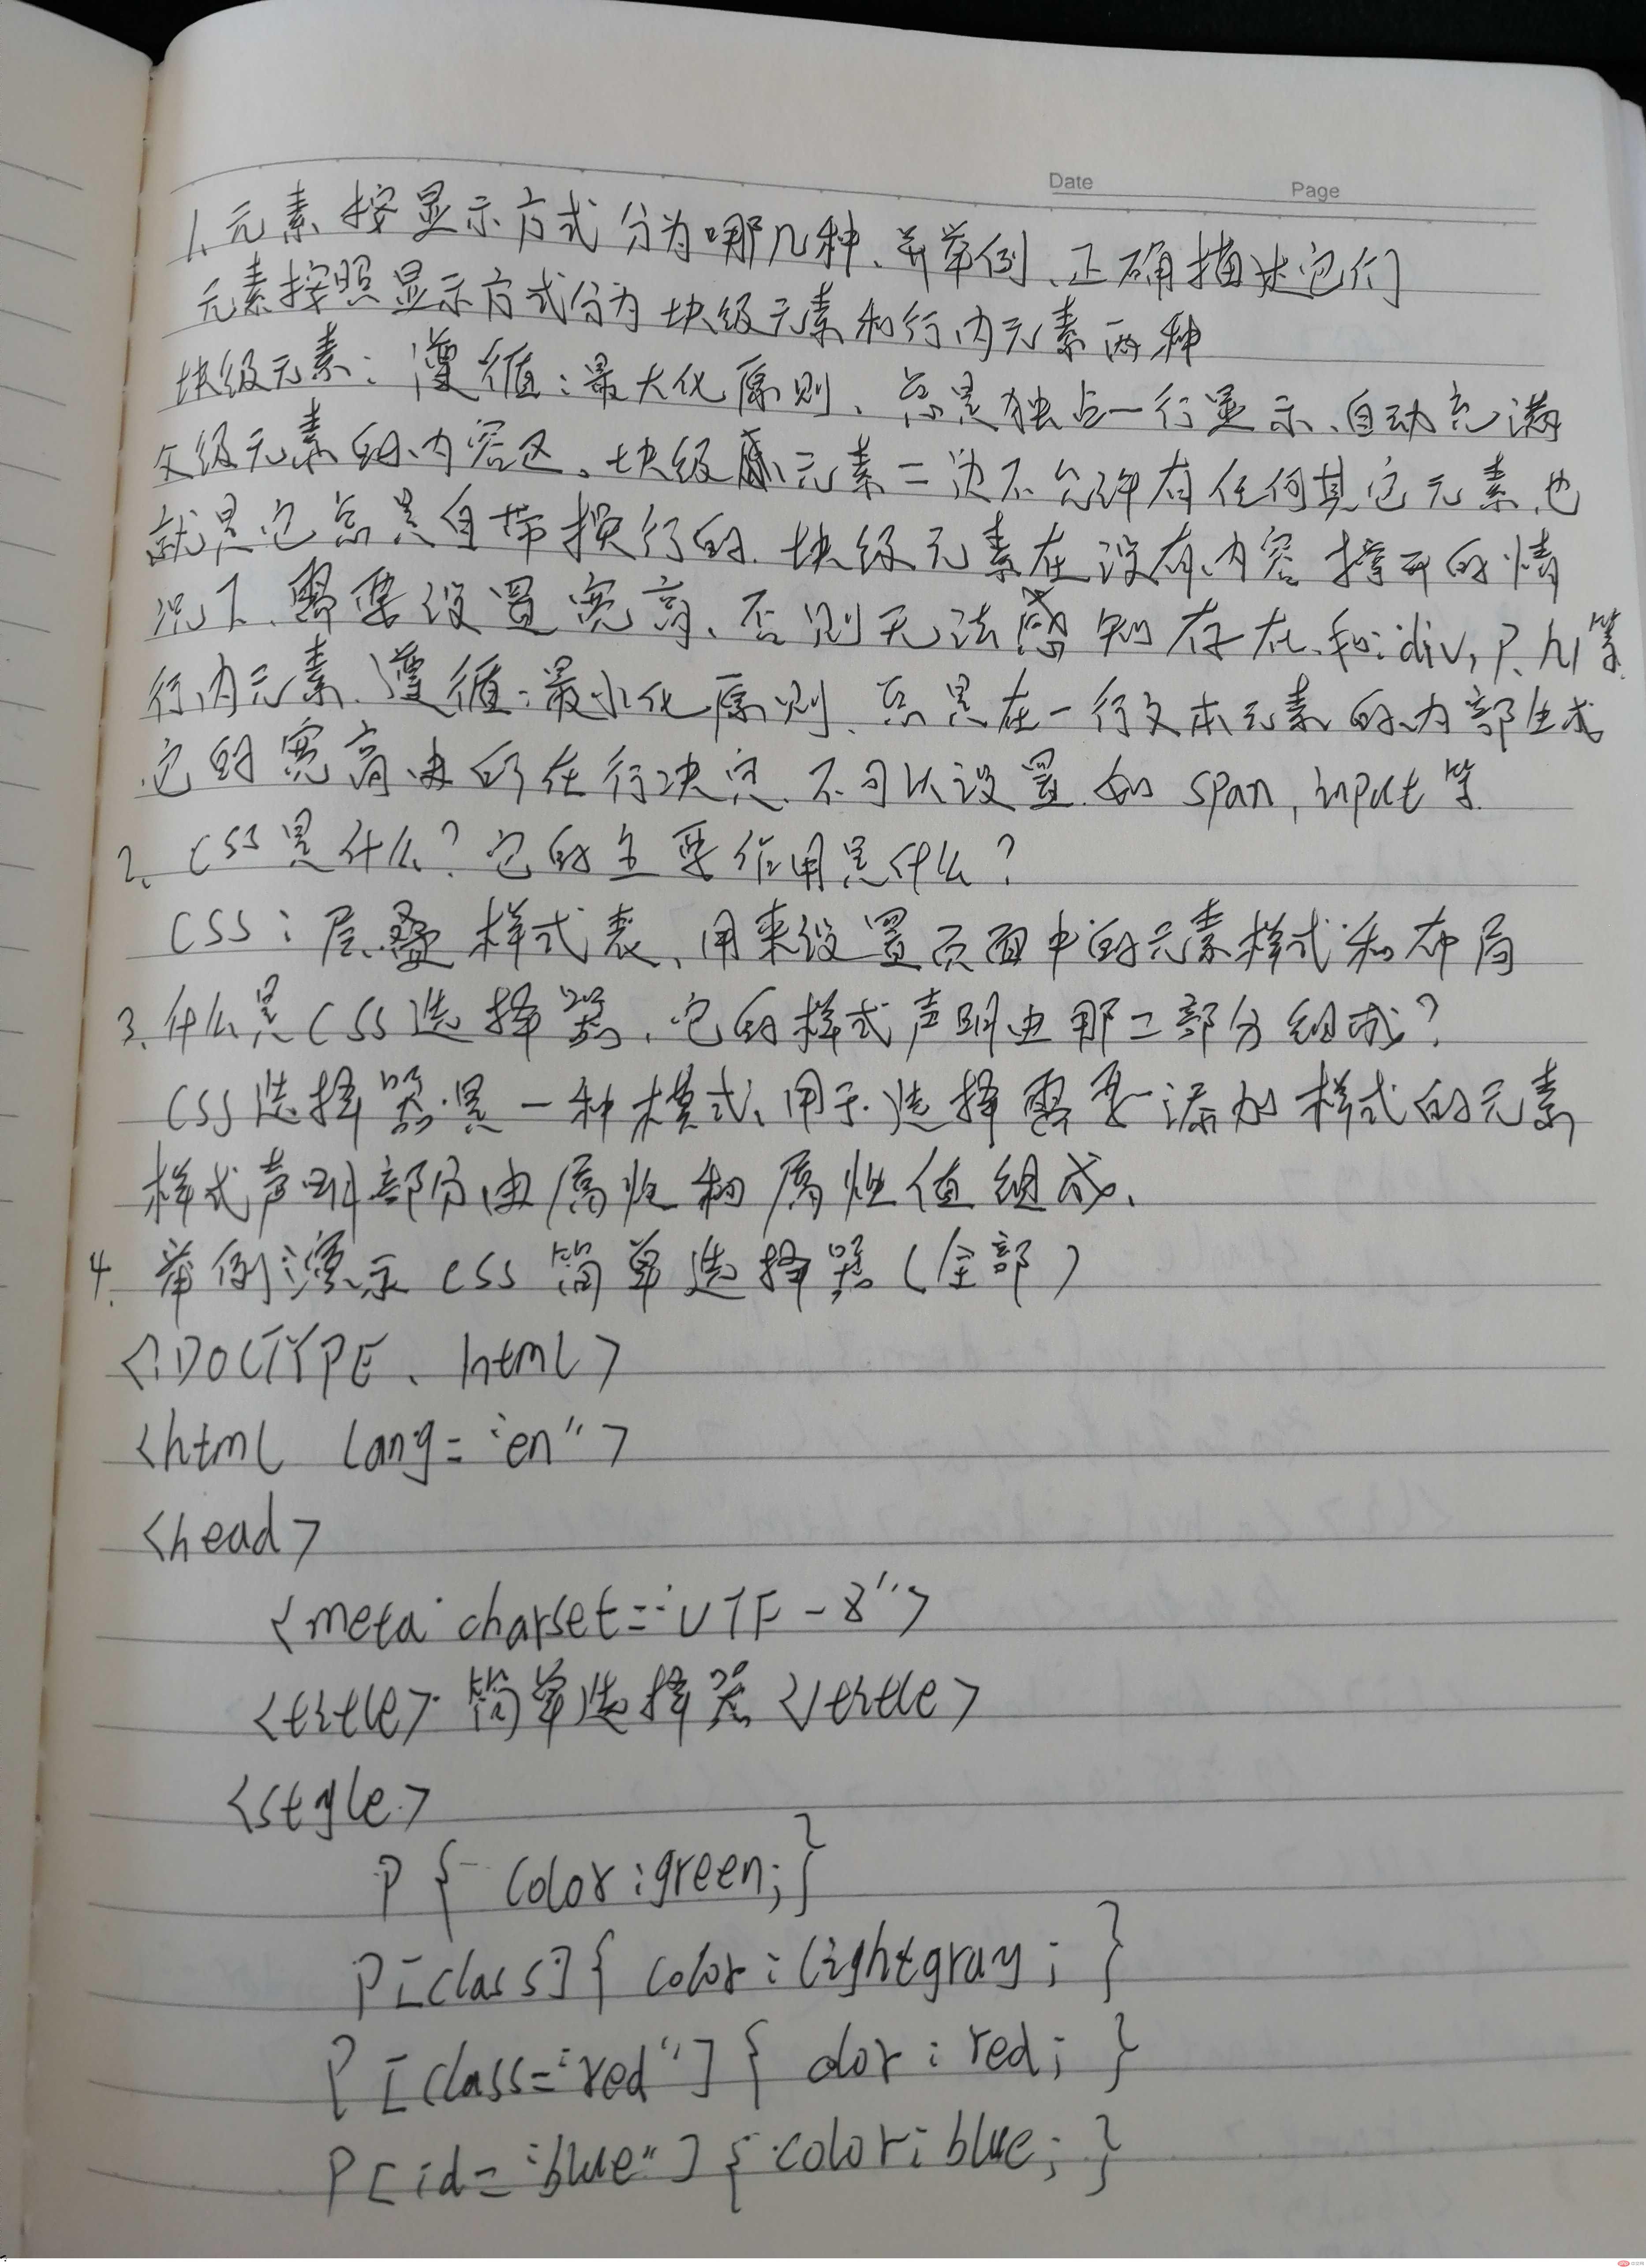 Date Page
1、元素按显示方式分为哪几种、并举例、正确描述它们
元素按照显示方式分为块级元素和行内元素两种
块级元素：遵循：最大化原则、总是独占一行显示、自动充满
父级元素的内容区、块级元素二边不允许有任何其它元素、也
就是它总是自带换行的、块级元素在没有内容撑开的情
况下、需要设置宽高、否则无法感知存在、如：div, p、h1等
行内元素、遵循：最小化原则、总是在一行文本元素的内部生成
它的宽高由所在行决定、不可以设置、如 span, input 等
2、CSS是什么？它的主要作用是什么？
CSS：层叠样式表、用来设置页面中的元素样式和布局
3、什么是CSS选择器、它的样式声明由那二部分组成？
CSS选择器是一种模式、用于选择需要添加样式的元素
样式声明部分由属性和属性值组成、
4、举例演示CSS简单选择器（全部）
<!DOCTYPE html>
<html lang="en">
<head>
<meta charset="UTF-8">
<title>简单选择器</title>
<style>
P { color:green;}
P[class]{ color:lightgray; }
P[class="red"]{ olor:red; }
P[id="blue"]{ color:blue; }